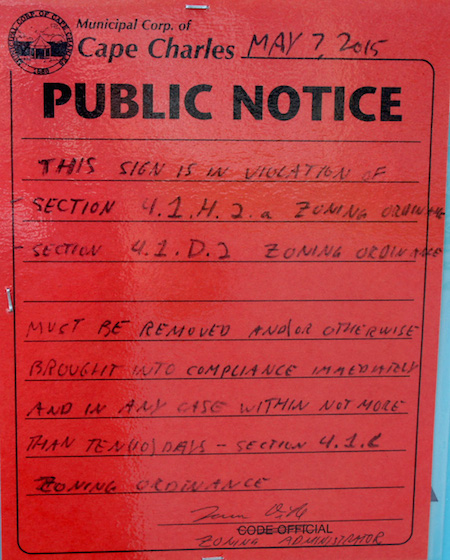 Municipal Corp. of
Cape Charles MAY 7, 2015
PUBLIC NOTICE
THIS SIGN IS IN VIOLATION OF
- SECTION 4.1.H.2.a ZONING ORDINANCE
- SECTION 4.1.D.2 ZONING ORDINANCE
MUST BE REMOVED AND/OR OTHERWISE
BROUGHT INTO COMPLIANCE IMMEDIATELY
AND IN ANY CASE WITHIN NOT MORE
THAN TEN (10) DAYS - SECTION 4.1.
ZONING ORDINANCE
CODE OFFICIAL
ZONING ADMINISTRATOR